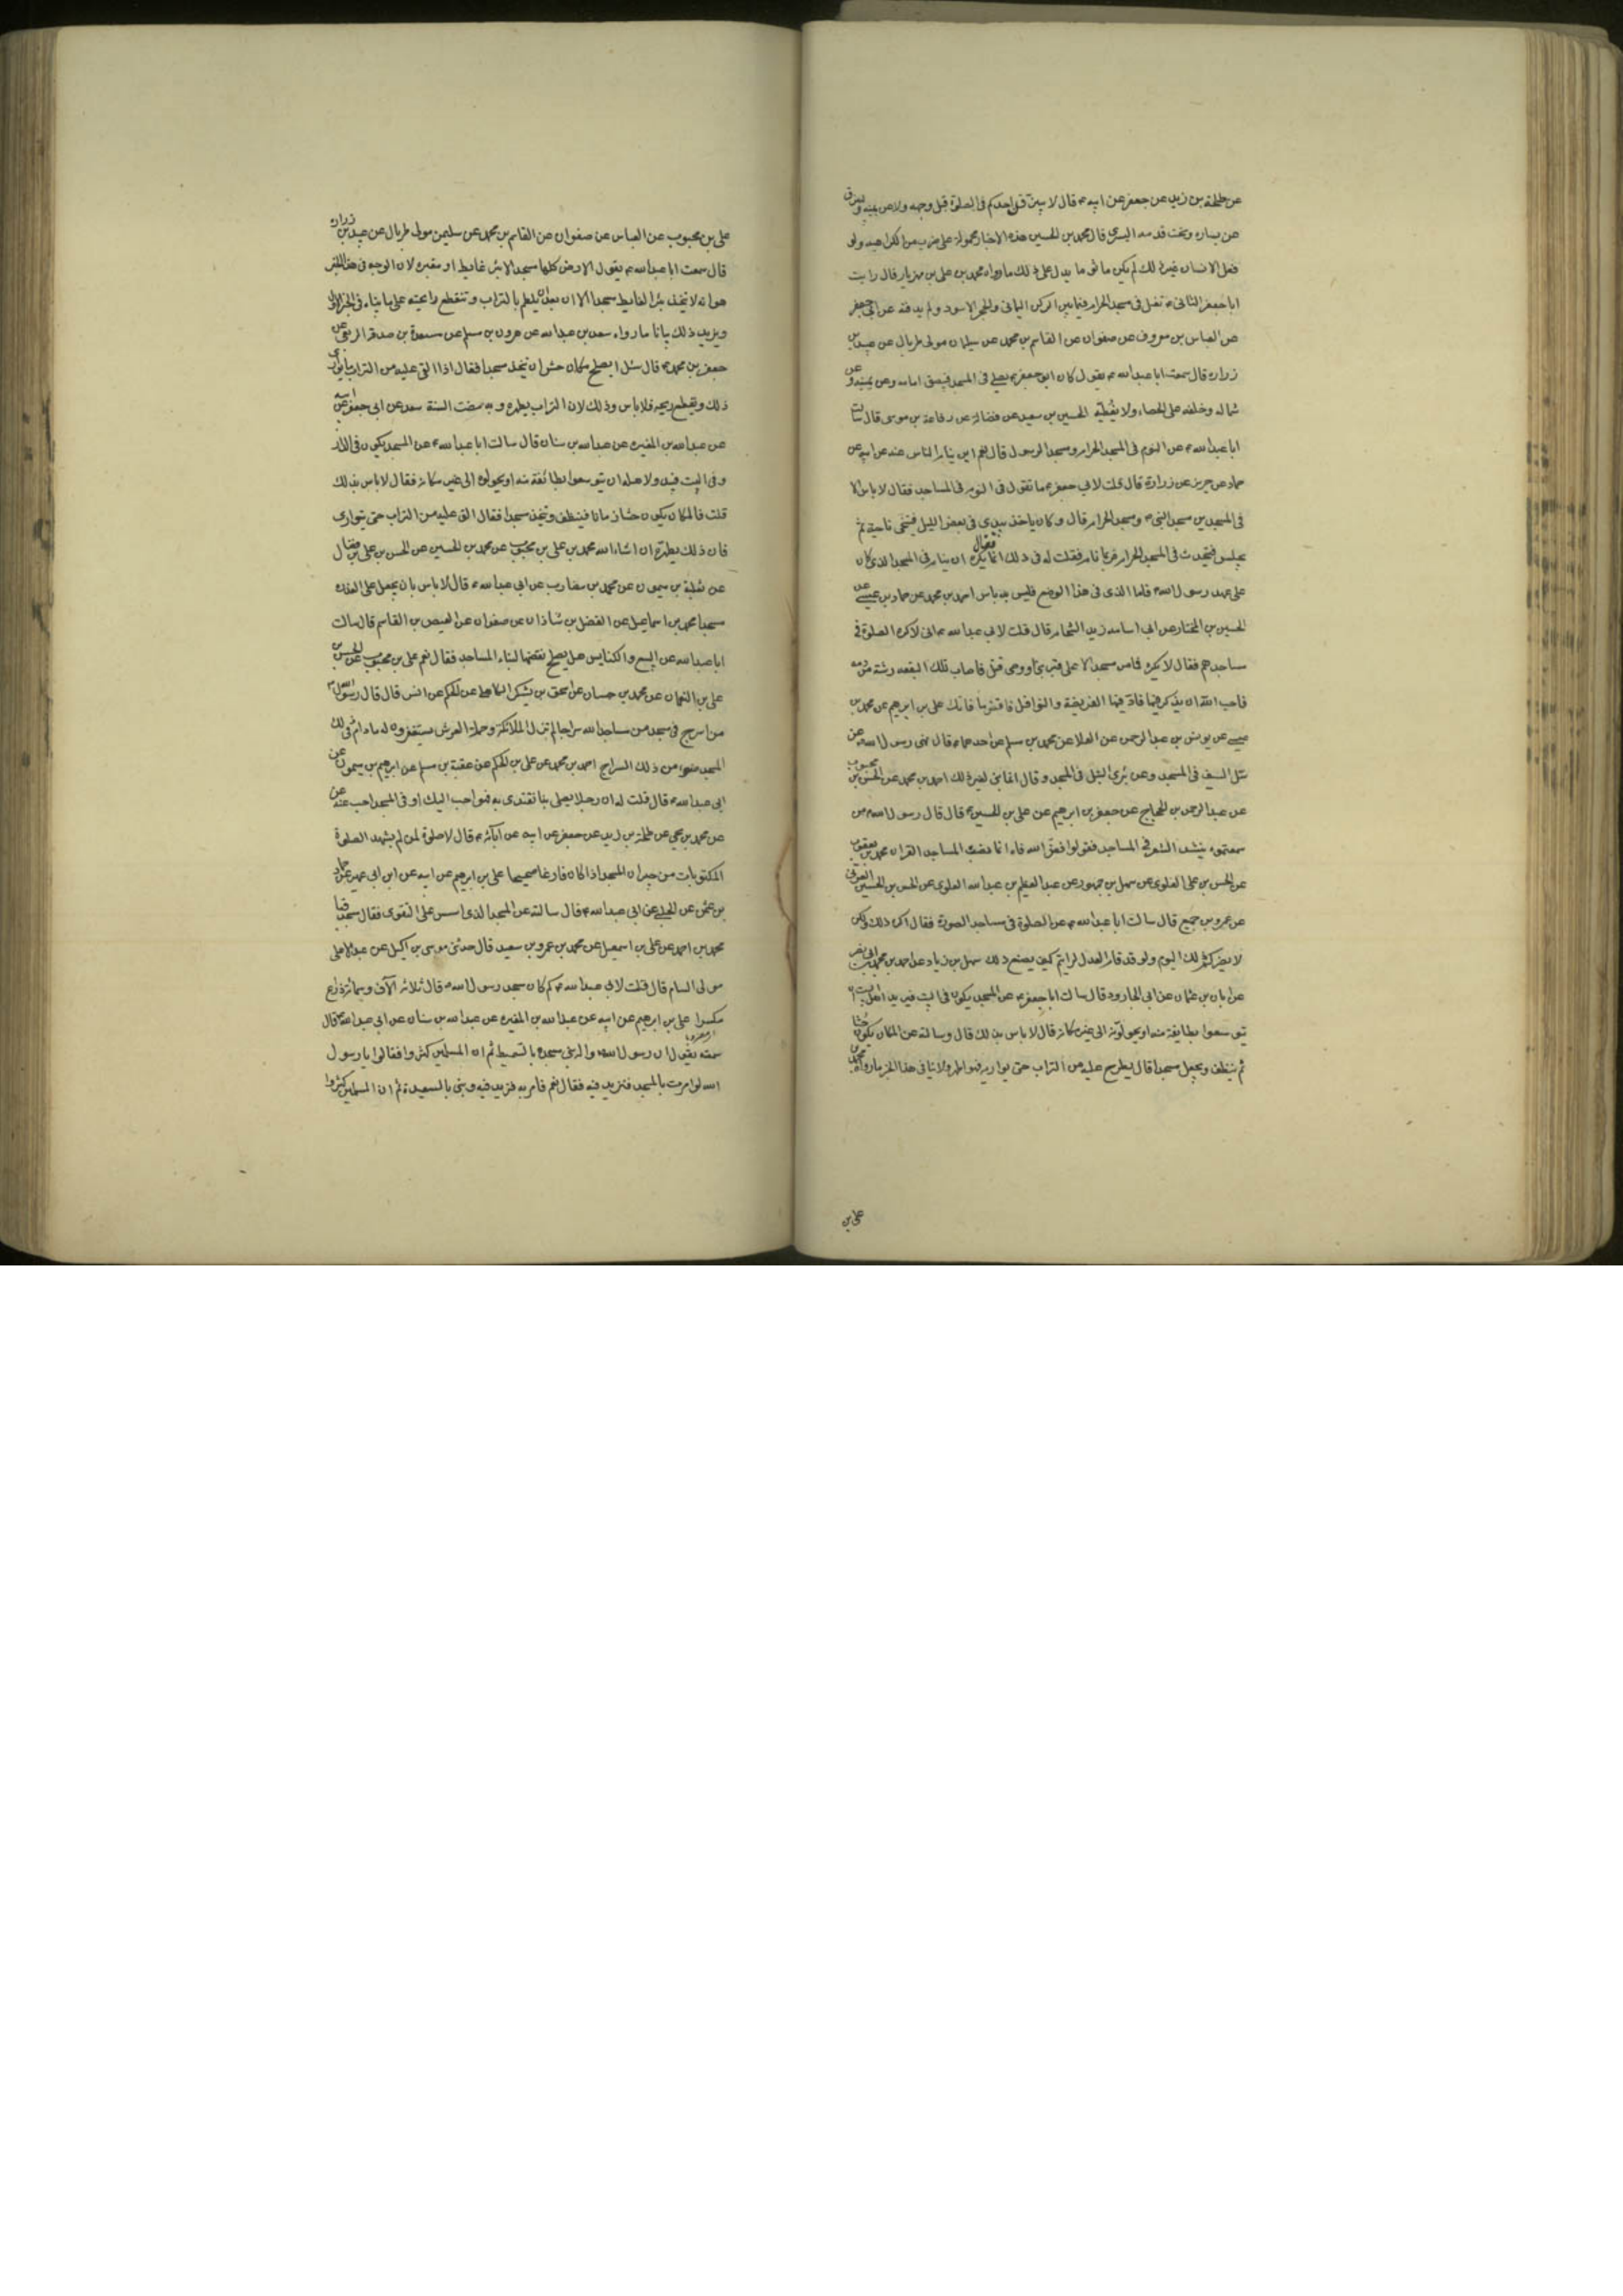 عن طلحة بن زيد عن جعفر عن ابيه ع قال لا يبزقن احدكم في الصلوة قبل وجهه ولا عن يمينه وليبزق
عن يساره وتحت قدمه اليسرى قال محمد بن الحسين هذه الاخبار محمولة على ضرب من الكراهيه ولو
فعل الانسان غير ذلك لم يكن ماثوما يدل على ذلك ما رواه محمد بن على بن مهزيار قال رايت
ابا جعفر الثانى ع تفل فى مسجد الحرام فيما بين الركن اليمانى والحجر الاسود ولم يدفنه عن ابى جعفر
عن العباس بن معروف عن صفوان عن القاسم بن محمد عن سليمان مولى طربال عن عبيد بن
زراره قال سمعت ابا عبد الله ع يقول كان ابو جعفر ع يصلى فى المسجد فيبصق امامه وعن يمينه وعن
شماله وخلفه على الحصاء ولا يغطيه الحسين بن سعيد عن فضالة عن رفاعة بن موسى قال سالت
ابا عبد الله ع عن النوم فى المسجد الحرام ومسجد الرسول قال نعم اين ينام الناس عنه عن ابيه عن
حماد عن حريز عن زرارة قال قلت لابي جعفر ع ما تقول فى النوم فى المساجد فقال لا باس الا
فى المسجدين مسجد النبى ص ومسجد الحرام قال وكان ياخذ بيدى فى بعض الليل فيتنحى ناحية ثم
يجلس فيتحدث فى المسجد الحرام فربما نام فقلت له فى ذلك فقال انما يكره ان ينام فى المسجد الذى كان
على عهد رسول الله ص فاما الذى فى هذا الموضع فليس به باس احمد بن محمد عن حماد بن عيسى عن
الحسين بن المختار عن ابى اسامه زيد الشحام قال قلت لابي عبد الله ع انى لاكره الصلوة فى
مساجدهم فقال لا تكره فما من مسجد الا على قبر نبى او وصى قتل فاصاب تلك البقعه رشة من دمه
فاحب الله ان يذكر فيها فاد فيها الفريضة والنوافل فاقض ما فاتك على بن ابرهيم عن محمد بن
عيسى عن يونس بن عبد الرحمن عن العلا عن محمد بن مسلم عن احدهما ع قال نهى رسول الله ص عن
سل السيف فى المسجد وعن برى النبل فى المسجد وقال انما بنى لغير ذلك احمد بن محمد عن الحسن بن محبوب
عن عبد الرحمن بن الحجاج عن جعفر بن ابرهيم عن على بن الحسين ع قال قال رسول الله ص من
سمعتموه ينشد الشعر فى المساجد فقولوا فض الله فاه انما نصبت المساجد القران محمد بن يعقوب
عن الحسن بن على العلوى عن سهل بن جمهور عن عبد العظيم بن عبد الله العلوى عن الحسن بن الحسين العرنى
عن عمرو بن جميع قال سالت ابا عبد الله ع عن الصلوة فى مساجد المصورة فقال اكره ذلك ولكن
لا يضركم ذلك اليوم ولو قد قام العدل لرايتم كيف يصنع ذلك سهل بن زياد عن احمد بن محمد بن ابى نصر
عن ابان بن عثمان عن ابى الجارود قال سالت ابا جعفر ع عن المسجد يكون فى البيت فيريد اهل البيت ان
يتوسعوا بطايفة منه او يحولونه الى غير مكانه قال لا باس بذلك قال وسالته عن المكان يكون حشا
ثم ينظف ويجعل مسجدا قال يطرح عليه من التراب حتى يواريه فهو اطهر ولا ينافى هذا الخبر ما رواه محمد بن
على بن
على بن محبوب عن العباس عن صفوان عن القاسم بن محمد عن سليمن مولى طربال عن عبيد بن زراره
قال سمعت ابا عبد الله ع يقول الارض كلها مسجد الا بئر غايط او مقبره لان الوجه فى هذا الخبر
هو انه لا تتخذ بئر الغايط مسجدا الا ان بعد ان يطم بالتراب وتنقطع رايحته على ما بيناه فى الخبر الاول
ويزيد ذلك بيانا ما رواه سعد بن عبد الله عن هرون بن مسلم عن مسعدة بن صدقة الربعى عن
جعفر بن محمد ع قال سئل ايصلح مكان حش ان يتخذ مسجدا فقال اذا القى عليه من التراب ما يوارى
ذلك ويقطع ريحه فلا باس وذلك لان التراب يطهره وبه مضت السنة سعد عن ابى جعفر عن ابيه
عن عبد الله بن المغيره عن عبد الله بن سنان قال سالت ابا عبد الله ع عن المسجد يكون فى الدار
وفى البيت فيبدو لاهله ان يتوسعوا بطائفة منه او يحولوه الى غير مكانه فقال لا باس بذلك
قلت فالمكان يكون حشا زمانا فينظف ويتخذ مسجدا فقال الق عليه من التراب حتى يتوارى
فان ذلك يطهره ان شاء الله محمد بن على بن محبوب عن محمد بن الحسين عن الحسن بن على بن فضال
عن ثعلبة بن ميمون عن محمد بن مضارب عن ابى عبد الله ع قال لا باس بان يجعل على العذره
مسجدا محمد بن اسماعيل عن الفضل بن شاذان عن صفوان عن العيص بن القاسم قال سالت
ابا عبد الله عن البيع والكنايس هل يصلح نقضها لبناء المساجد فقال نعم على بن محبوب عن الحسن بن
على بن النعمان عن محمد بن حسان عن اسحق بن يشكر الكاهلى عن الحكم عن انس قال قال رسول الله ص
من اسرج فى مسجد من مساجد الله سراجا لم تزل الملائكة وحملة العرش يستغفرون له ما دام فى ذلك
المسجد ضوء من ذلك السراج احمد بن محمد عن على بن الحكم عن عقبة بن مسلم عن ابرهيم بن ميمون عن
ابى عبد الله ع قال قلت له ان رجلا يصلى بنا نقتدى به فهو احب اليك او فى المسجد احب عنه عن
عن محمد بن يحيى عن طلحة بن زيد عن جعفر عن ابيه عن آبائه ع قال لا صلوة لمن لم يشهد الصلوة
المكتوبات من جيران المسجد اذا كان فارغا صحيحا على بن ابرهيم عن ابيه عن ابن ابى عمير عن حماد
بن عثمن عن الحلبى عن ابى عبد الله ع قال سالته عن المسجد الذى اسس على التقوى فقال مسجد قبا
محمد بن احمد عن على بن اسمعيل عن محمد بن عمرو بن سعيد قال حدثنى موسى بن اكيل عن عبد الاعلى
مولى السام قال قلت لابى عبد الله ع كم كان مسجد رسول الله ص قال ثلاثه آلاف وستمائة ذراع
مكسرا على بن ابرهيم عن ابيه عن عبد الله بن المغيره عن عبد الله بن سنان عن ابى عبد الله ع قال
سمعته يقول ان رسول الله ص بنى مسجده بالسميط ثم ان المسلمين كثروا فقالوا يا رسول
الله لو امرت بالمسجد فنزيد فيه فقال نعم فامر به فزيد فيه وبنى بالسعيدة ثم ان المسلمين كثروا